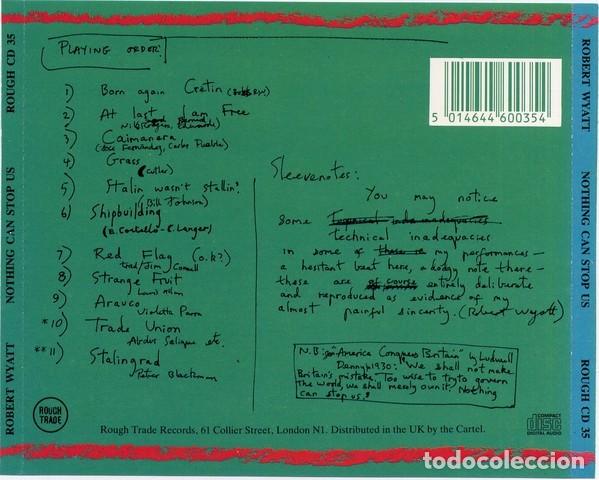 ROBERT WYATT
NOTHING CAN STOP US
ROUGH CD 35
PLAYING ORDER:
1) Born again Cretin
2) At last I am Free
Nile Rodgers, Bernard Edwards)
3) Caimanera
(Jose Fernandez, Carlos Puebla)
4) Grass
(Cutler)
5) Stalin wasn't stallin'.
(Bill Johnson)
6) Shipbuilding
(E. Costello - C. Langer)
7) Red Flag (O.K?)
trad/Jim Connell
8) Strange Fruit
Lewis Allan
9) Arauco
Violetta Parra
*10) Trade Union
Abdus Salique etc.
**11) Stalingrad
Peter Blackman
5 014644 600354
Sleevenotes:
You may notice
some technical inadequacies
technical inadequacies
in some of these is my performances—
a hesitant beat here, a dodgy note there—
these are of course entirely deliberate
and reproduced as evidence of my
almost painful sincerity. (Robert Wyatt)
N.B: in "America Conquers Britain" by Ludwell
Denny, 1930: 'We shall not make
Britain's mistake. Too wise to try to govern
the world, we shall merely own it. Nothing
can stop us.'
ROUGH
TRADE
Rough Trade Records, 61 Collier Street, London N1. Distributed in the UK by the Cartel.
COMPACT
disc
DIGITAL AUDIO
ROBERT WYATT
NOTHING CAN STOP US
ROUGH CD 35
todocoleccion